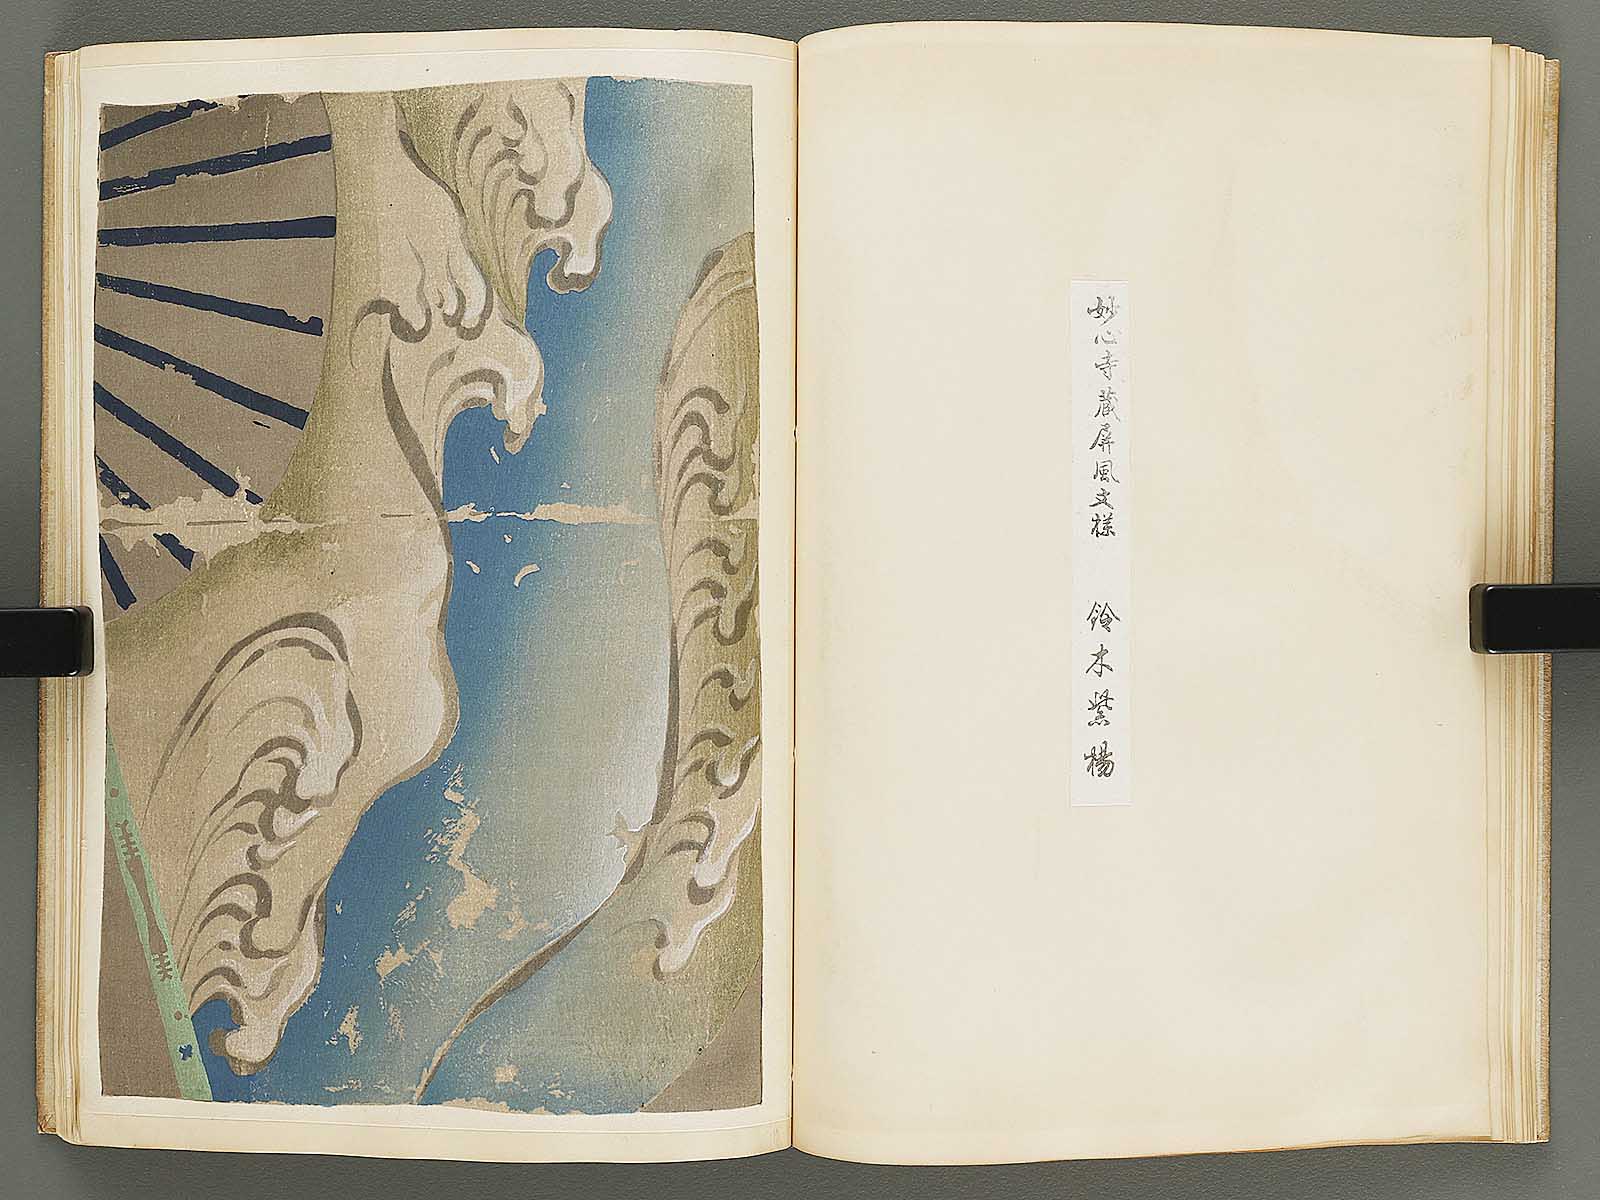 妙心寺蔵屏風文様　鈴木紫楊